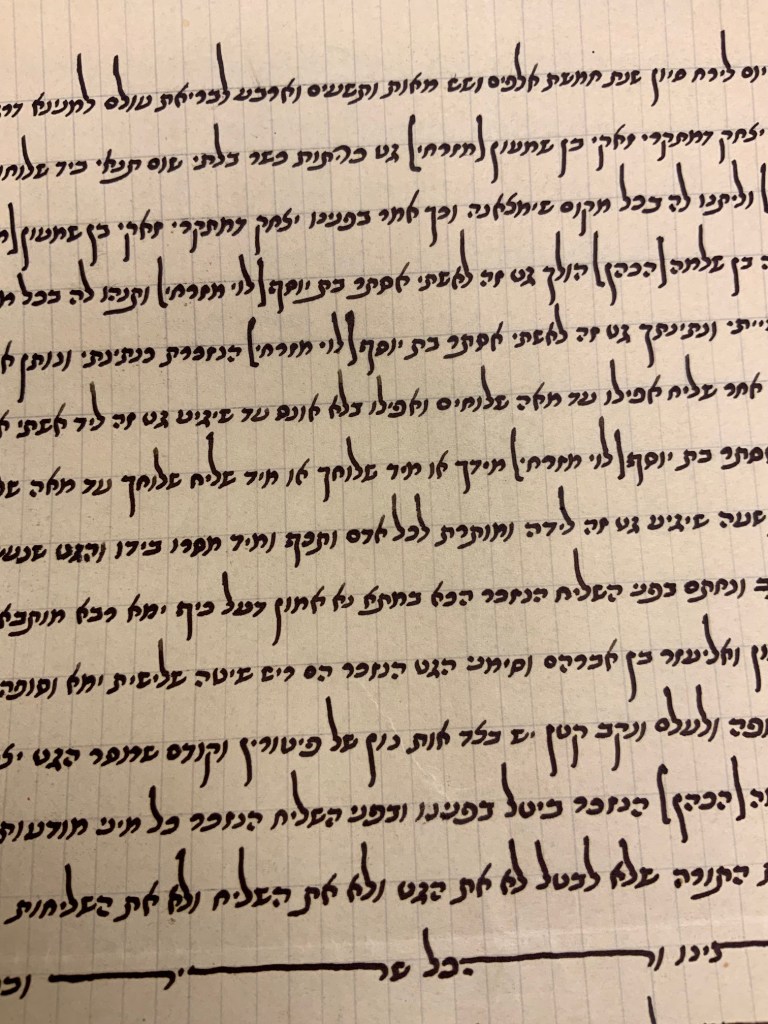 יום לירח סיון שנת חמשת אלפים ושש מאות ותשעים וארבע לבריאת עולם למנינא
יצחק דמתקרי זאקי בן שמעון [מזרחי] גט כהתות כשר בלתי שום תנאי ביד שלוחו
וליתנו לה בכל מקום שימצאנה וכך אמר בפנינו יצחק דמתקרי זאקי בן שמעון
בן שלמה [הכהן] הולך גט זה לאשתי אסתר בת יוסף [לוי מזרחי] ותנהו לה בכל
ונתינתך גט זה לאשתי אסתר בת יוסף [לוי מזרחי] הנזכרת כנתינתי ונותן
אחר שליח אפילו עד מאה שלוחים ואפילו בלא אונס עד שיגיע גט זה ליד אשתי
אסתר בת יוסף [לוי מזרחי] מידך או מיד שלוחך או מיד שליח שלוחך עד מאה
שעה שיגיע גט זה לידה ומותרת לכל אדם ותכף ומיד מסרו בידו והגט
ונחתם בפני השליח הנזכר הכא במתא נא אמון דעל כיף ימא רבא מותבא
ואליעזר בן אברהם וסימני הגט הנזכר הם ריש שיטה שלישית ימא וסופה
ולעלם ונקב קטן יש בצד אות נון של פיטורין וקודם שמסר הגט
[הכהן] הנזכר ביטל בפנינו ובפני השליח הנזכר כל מיני מודעות
התורה שלא לבטל לא את הגט ולא את השליח ולא את השליחות
וכל שר